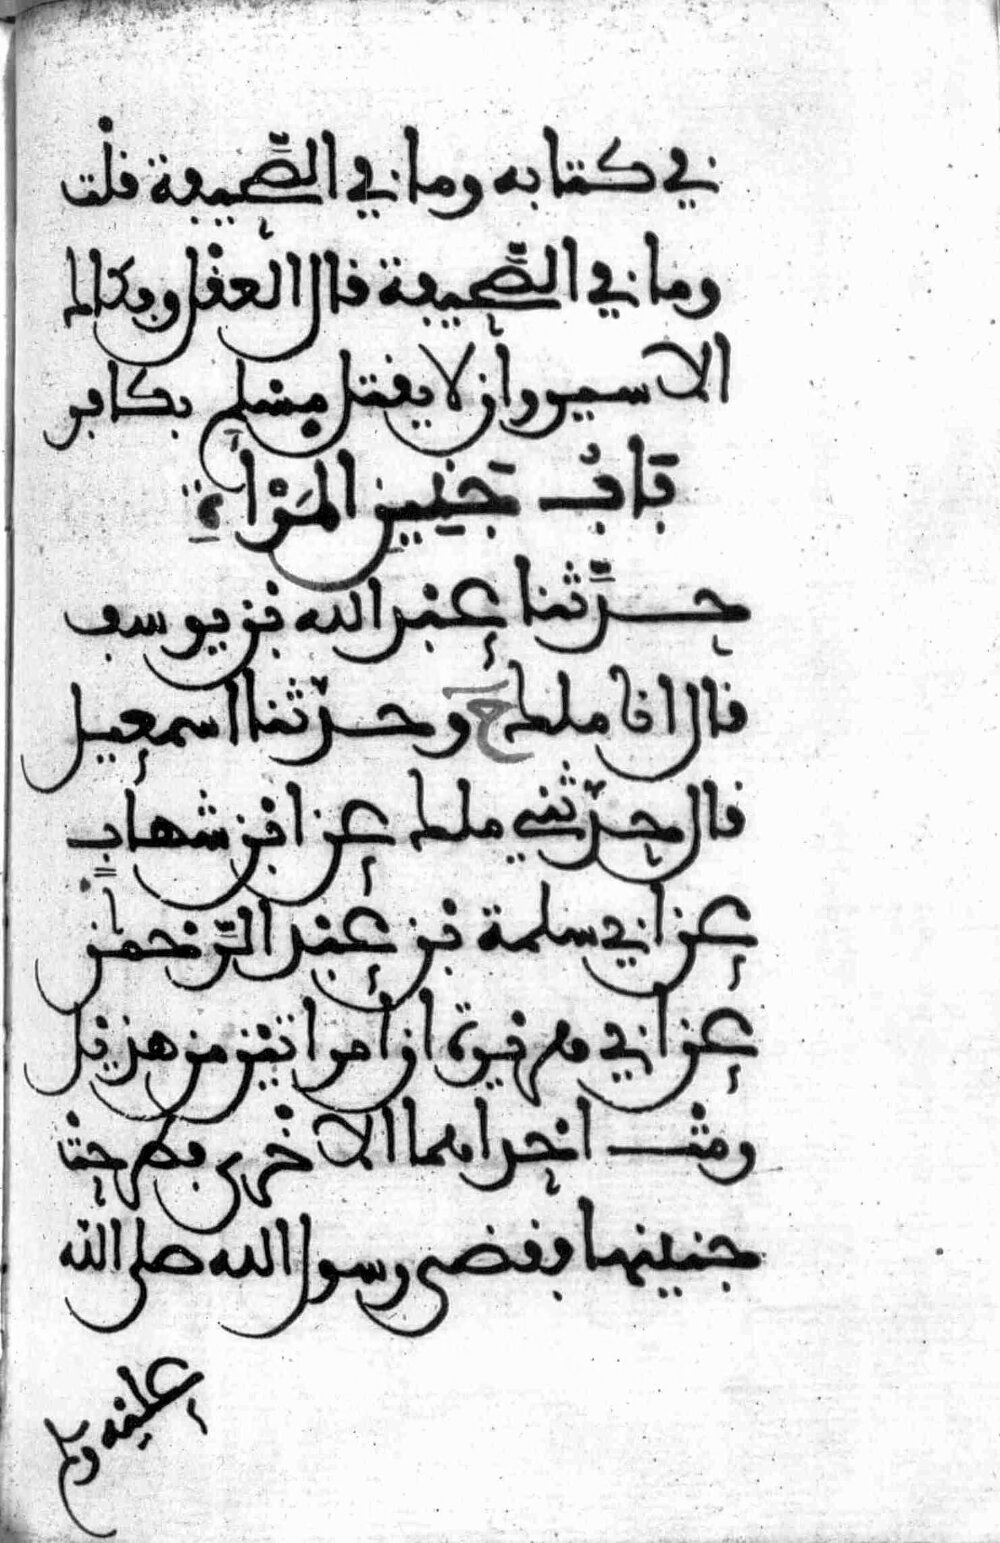 في كتابه وما في الصحيفة قلت
وما في الصحيفة قال العقل وفكاك
الاسير وان لا يقتل مسلم بكافر
باب جنين المرأة
حدثنا عبد الله بن يوسف
قال انا ملك ح وحدثنا اسمعيل
قال حدثني ملك عن ابن شهاب
عن ابي سلمة بن عبد الرحمن
عن ابي هريرة ان امراتين من هذيل
رمت احداهما الاخرى فطرحت
جنينها فقضى رسول الله صلى الله
عليه وسلم